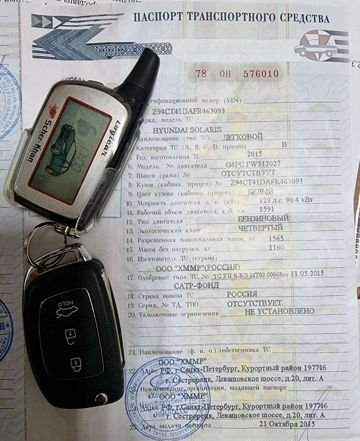 ПАСПОРТ ТРАНСПОРТНОГО СРЕДСТВА
78 ОН 576010
Идентификационный номер (VIN)
Z94CT41DAFR463093
Марка, модель ТС
HYUNDAI SOLARIS
ЛЕГКОВОЙ
Категория ТС (А, В, С, D, прицеп)
B
Год изготовления ТС
2015
Модель, № двигателя
G4FC FW517027
Шасси (рама) №
ОТСУТСТВУЕТ
Кузов (кабина, прицеп) №
Z94CT41DAFR463093
Цвет кузова (кабины, прицепа)
БЕЛЫЙ
Мощность двигателя, л. с. (кВт)
123 л.с. 90.4 кВт
Рабочий объем двигателя, куб. см
1591
12. Тип двигателя
БЕНЗИНОВЫЙ
13. Экологический класс
ЧЕТВЕРТЫЙ
14. Разрешенная максимальная масса, кг
1565
15. Масса без нагрузки, кг
1160
16. Изготовитель ТС (страна)
ООО "ХММР"(РОССИЯ)
17. Одобрение типа ТС №
от 11.05.2015
САТР-ФОНД
18. Страна вывоза ТС
РОССИЯ
19. Серия, № ТД, ТПО
ОТСУТСТВУЕТ
20. Таможенные ограничения
НЕ УСТАНОВЛЕНО
21. Наименование (ф. и. о.) собственника ТС
ООО "ХММР"
22. Адрес РФ, г.Санкт-Петербург, Курортный район 197706
г.Сестрорецк, Левашовское шоссе, д.20, лит. А
ООО "ХММР"
Адрес РФ, г.Санкт-Петербург, Курортный район 197706
г.Сестрорецк, Левашовское шоссе, д.20, лит. А
25. Дата выдачи паспорта
21 Октября 2015
Scher-Khan
Logicar
HOLD